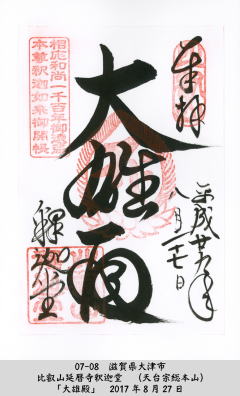 奉拝
大雄殿
平成廿九年
八月二十七日
釋迦堂
相応和尚一千百年御遠忌
本尊釈迦如来御開帳
07-08　滋賀県大津市
比叡山延暦寺釈迦堂　（天台宗総本山）
「大雄殿」　2017年8月27日